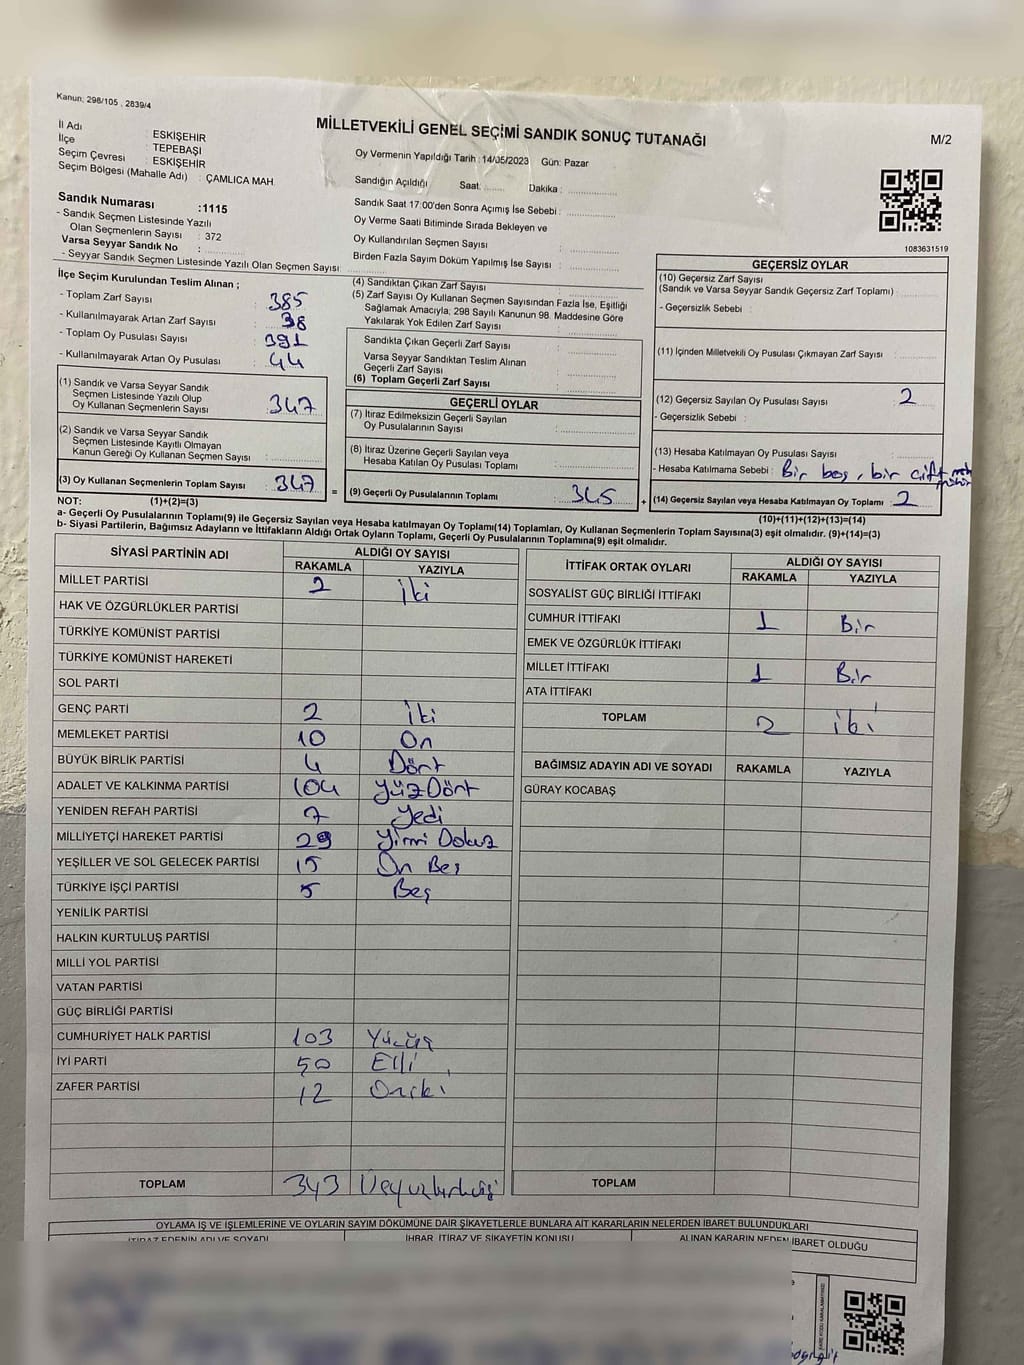 Kanun; 298/105 , 2839/4
MİLLETVEKİLİ GENEL SEÇİMİ SANDIK SONUÇ TUTANAĞI
M/2
İl Adı : ESKİŞEHİR
İlçe : TEPEBAŞI
Seçim Çevresi : ESKİŞEHİR
Seçim Bölgesi (Mahalle Adı) : ÇAMLICA MAH.
Sandık Numarası :1115
- Sandık Seçmen Listesinde Yazılı
Olan Seçmenlerin Sayısı : 372
Varsa Seyyar Sandık No :
- Seyyar Sandık Seçmen Listesinde Yazılı Olan Seçmen Sayısı:
Oy Vermenin Yapıldığı Tarih : 14/05/2023 Gün: Pazar
Sandığın Açıldığı Saat: Dakika :
Sandık Saat 17:00'den Sonra Açımış İse Sebebi :
Oy Verme Saati Bitiminde Sırada Bekleyen ve
Oy Kullandırılan Seçmen Sayısı :
Birden Fazla Sayım Döküm Yapılmış İse Sayısı :
1083631519
İlçe Seçim Kurulundan Teslim Alınan ;
- Toplam Zarf Sayısı : 385
- Kullanılmayarak Artan Zarf Sayısı : 38
- Toplam Oy Pusulası Sayısı : 391
- Kullanılmayarak Artan Oy Pusulası : 44
(1) Sandık ve Varsa Seyyar Sandık
Seçmen Listesinde Yazılı Olup
Oy Kullanan Seçmenlerin Sayısı : 347
(2) Sandık ve Varsa Seyyar Sandık
Seçmen Listesinde Kayıtlı Olmayan
Kanun Gereği Oy Kullanan Seçmen Sayısı :
(3) Oy Kullanan Seçmenlerin Toplam Sayısı : 347
(4) Sandıktan Çıkan Zarf Sayısı :
(5) Zarf Sayısı Oy Kullanan Seçmen Sayısından Fazla İse, Eşitliği
Sağlamak Amacıyla, 298 Sayılı Kanunun 98. Maddesine Göre
Yakılarak Yok Edilen Zarf Sayısı :
Sandıkta Çıkan Geçerli Zarf Sayısı :
Varsa Seyyar Sandıktan Teslim Alınan
Geçerli Zarf Sayısı :
(6) Toplam Geçerli Zarf Sayısı :
GEÇERLİ OYLAR
(7) İtiraz Edilmeksizin Geçerli Sayılan
Oy Pusulalarının Sayısı :
(8) İtiraz Üzerine Geçerli Sayılan veya
Hesaba Katılan Oy Pusulası Toplamı :
= (9) Geçerli Oy Pusulalarının Toplamı : 345
GEÇERSİZ OYLAR
(10) Geçersiz Zarf Sayısı
(Sandık ve Varsa Seyyar Sandık Geçersiz Zarf Toplamı) :
- Geçersizlik Sebebi :
(11) İçinden Milletvekili Oy Pusulası Çıkmayan Zarf Sayısı :
(12) Geçersiz Sayılan Oy Pusulası Sayısı : 2
- Geçersizlik Sebebi :
(13) Hesaba Katılmayan Oy Pusulası Sayısı :
- Hesaba Katılmama Sebebi : Bir boş, bir çift mühür
+ (14) Geçersiz Sayılan veya Hesaba Katılmayan Oy Toplamı : 2
NOT: (1)+(2)=(3)
(10)+(11)+(12)+(13)=(14)
a- Geçerli Oy Pusulalarının Toplamı(9) ile Geçersiz Sayılan veya Hesaba katılmayan Oy Toplamı(14) Toplamları, Oy Kullanan Seçmenlerin Toplam Sayısına(3) eşit olmalıdır. (9)+(14)=(3)
b- Siyasi Partilerin, Bağımsız Adayların ve İttifakların Aldığı Ortak Oyların Toplamı, Geçerli Oy Pusulalarının Toplamına(9) eşit olmalıdır.
SİYASİ PARTİNİN ADI ALDIĞI OY SAYISI
RAKAMLA YAZIYLA
MİLLET PARTİSİ 2 iki
HAK VE ÖZGÜRLÜKLER PARTİSİ
TÜRKİYE KOMÜNİST PARTİSİ
TÜRKİYE KOMÜNİST HAREKETİ
SOL PARTİ
GENÇ PARTİ 2 iki
MEMLEKET PARTİSİ 10 On
BÜYÜK BİRLİK PARTİSİ 4 Dört
ADALET VE KALKINMA PARTİSİ 104 YüzDört
YENİDEN REFAH PARTİSİ 7 Yedi
MİLLİYETÇİ HAREKET PARTİSİ 29 Yirmi Dokuz
YEŞİLLER VE SOL GELECEK PARTİSİ 15 On Beş
TÜRKİYE İŞÇİ PARTİSİ 5 Beş
YENİLİK PARTİSİ
HALKIN KURTULUŞ PARTİSİ
MİLLİ YOL PARTİSİ
VATAN PARTİSİ
GÜÇ BİRLİĞİ PARTİSİ
CUMHURİYET HALK PARTİSİ 103
İYİ PARTİ 50 Elli
ZAFER PARTİSİ 12 Oniki
TOPLAM 343
İTTİFAK ORTAK OYLARI ALDIĞI OY SAYISI
RAKAMLA YAZIYLA
SOSYALİST GÜÇ BİRLİĞİ İTTİFAKI
CUMHUR İTTİFAKI 1 Bir
EMEK VE ÖZGÜRLÜK İTTİFAKI
MİLLET İTTİFAKI 1 Bir
ATA İTTİFAKI
TOPLAM 2 iki
BAĞIMSIZ ADAYIN ADI VE SOYADI RAKAMLA YAZIYLA
GÜRAY KOCABAŞ
TOPLAM
OYLAMA İŞ VE İŞLEMLERİNE VE OYLARIN SAYIM DÖKÜMÜNE DAİR ŞİKAYETLERLE BUNLARA AİT KARARLARIN NELERDEN İBARET BULUNDUKLARI
İTİRAZ EDENİN ADI VE SOYADI İHBAR, İTİRAZ VE ŞİKAYETİN KONUSU ALINAN KARARIN NEDEN İBARET OLDUĞU